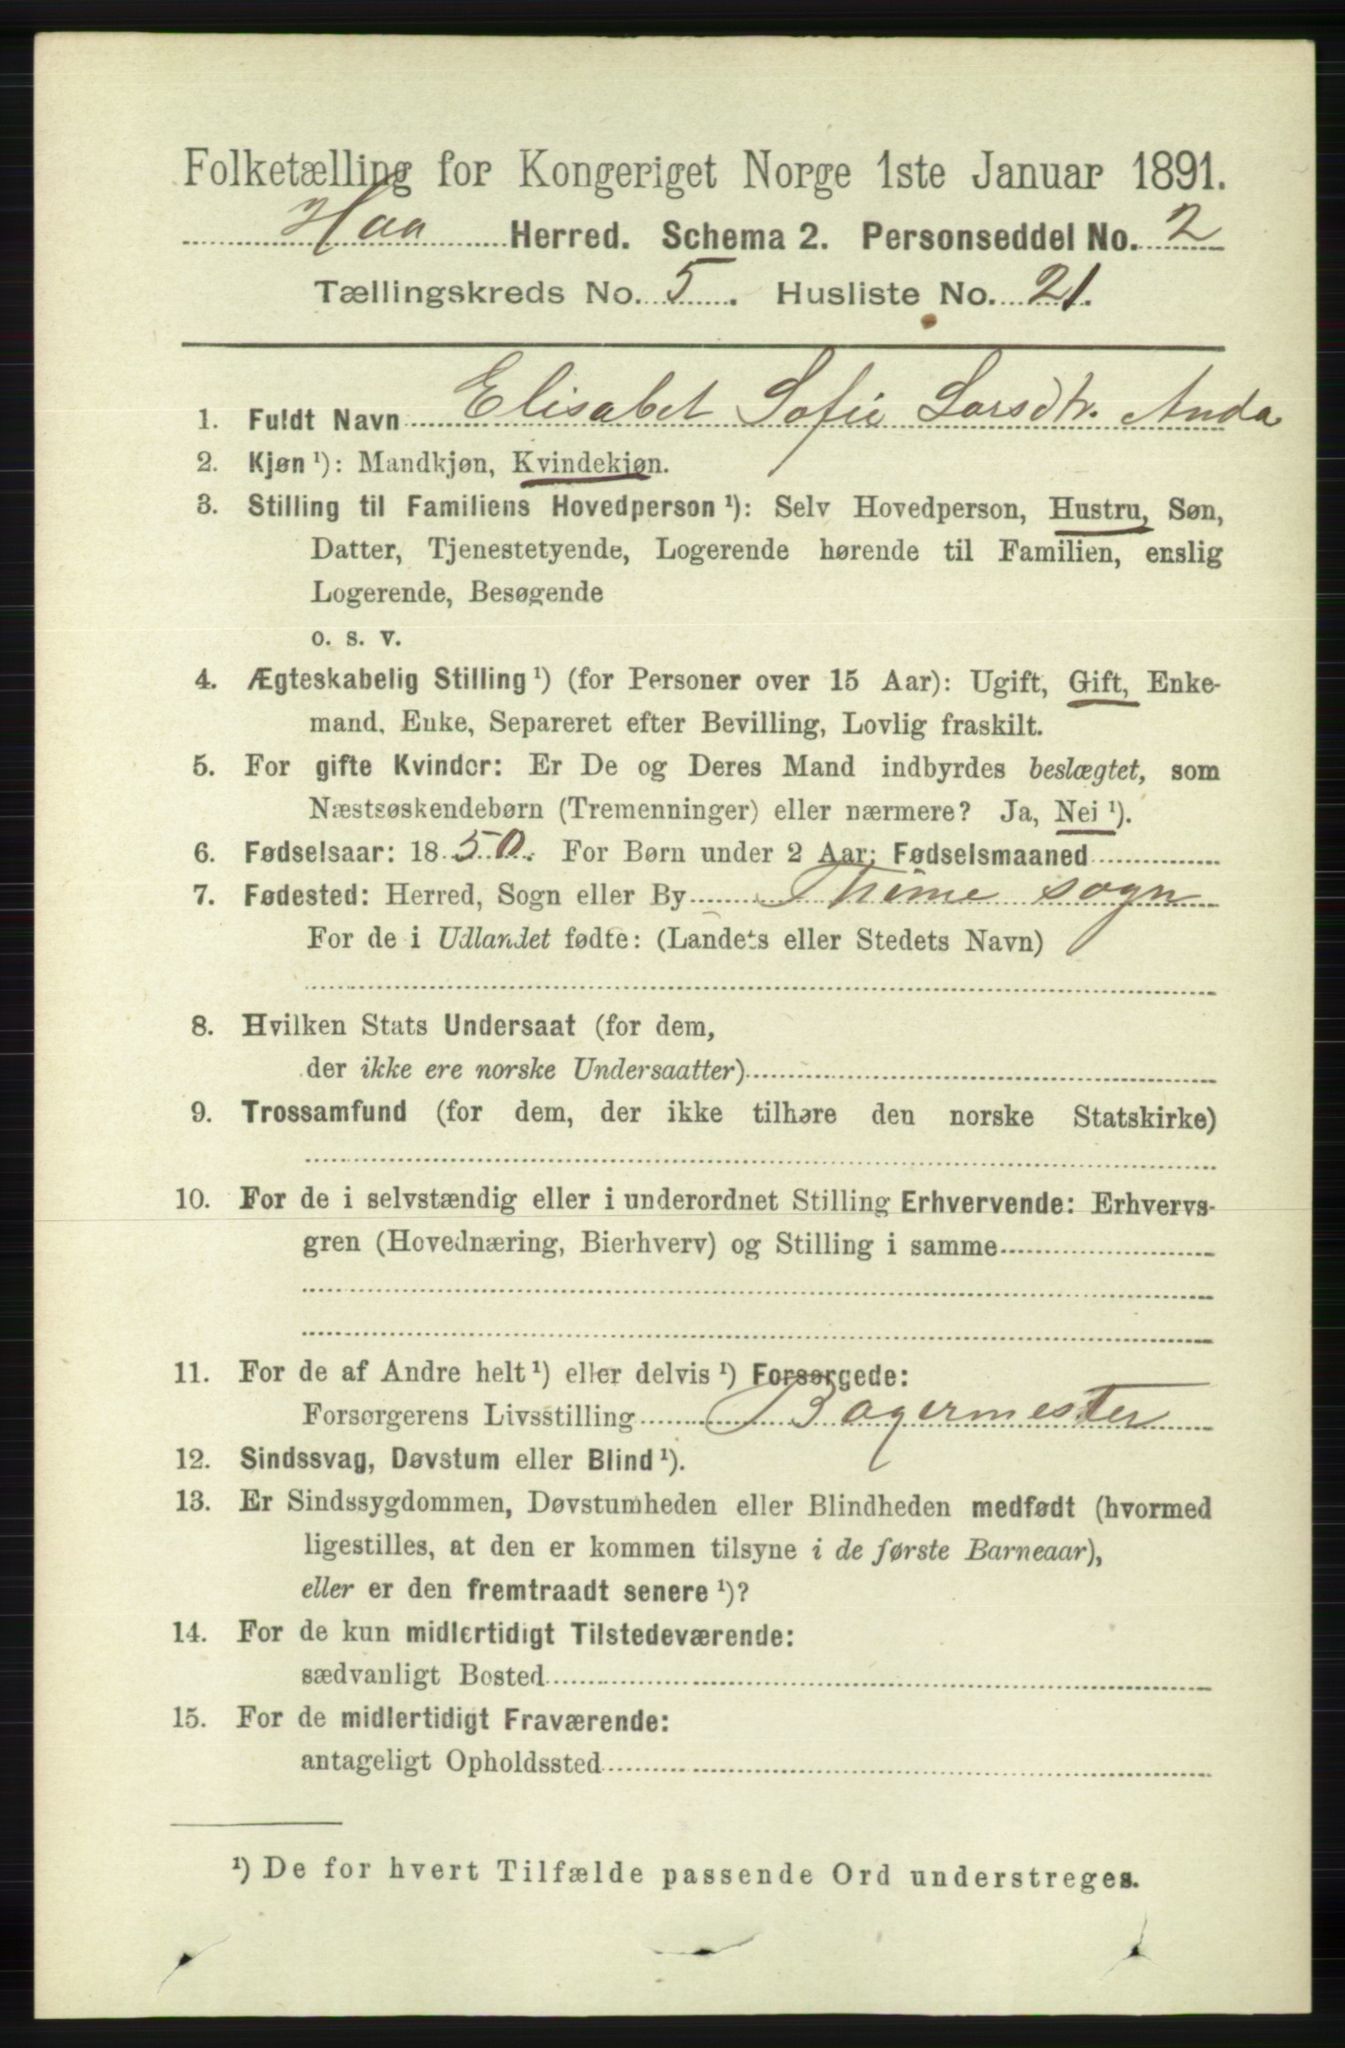 Folketælling for Kongeriget Norge 1ste Januar 1891.
Haa Herred. Schema 2. Personseddel No. 2
Tællingskreds No. 5. Husliste No. 21.
1. Fuldt Navn Elisabet Sofie Larsdtr. Anda
2. Kjøn ¹): Mandkjøn, Kvindekjøn.
3. Stilling til Familiens Hovedperson ¹): Selv Hovedperson, Hustru, Søn,
Datter, Tjenestetyende, Logerende hørende til Familien, enslig
Logerende, Besøgende
o. s. v.
4. Ægteskabelig Stilling ¹) (for Personer over 15 Aar): Ugift, Gift, Enke-
mand, Enke, Separeret efter Bevilling, Lovlig fraskilt.
5. For gifte Kvinder: Er De og Deres Mand indbyrdes beslægtet, som
Næstsøskendebørn (Tremenninger) eller nærmere? Ja, Nei ¹).
6. Fødselsaar: 1850. For Børn under 2 Aar: Fødselsmaaned
7. Fødested: Herred, Sogn eller By Thime sogn
For de i Udlandet fødte: (Landets eller Stedets Navn)
8. Hvilken Stats Undersaat (for dem,
der ikke ere norske Undersaatter)
9. Trossamfund (for dem, der ikke tilhøre den norske Statskirke)
10. For de i selvstændig eller i underordnet Stilling Erhvervende: Erhvervs-
gren (Hovednæring, Bierhverv) og Stilling i samme
11. For de af Andre helt ¹) eller delvis ¹) Forsørgede:
Forsørgerens Livsstilling Bagermester
12. Sindssvag, Døvstum eller Blind ¹).
13. Er Sindssygdommen, Døvstumheden eller Blindheden medfødt (hvormed
ligestilles, at den er kommen tilsyne i de første Barneaar),
eller er den fremtraadt senere ¹)?
14. For de kun midlertidigt Tilstedeværende:
sædvanligt Bosted
15. For de midlertidigt Fraværende:
antageligt Opholdssted
¹) De for hvert Tilfælde passende Ord understreges.